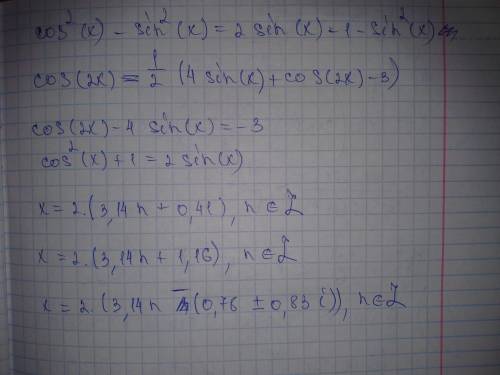 cos²(x) - sin²(x) = 2 sin(x) - 1 - sin²(x)
cos(2x) = 1/2 (4 sin(x) + cos(2x) - 3)
cos(2x) - 4 sin(x) = -3
cos²(x) + 1 = 2 sin(x)
x = 2·(3,14n + 0,41), n ∈ Z
x = 2·(3,14n + 1,16), n ∈ Z
x = 2·(3,14n - (0,76 ± 0,83 i)), n ∈ Z